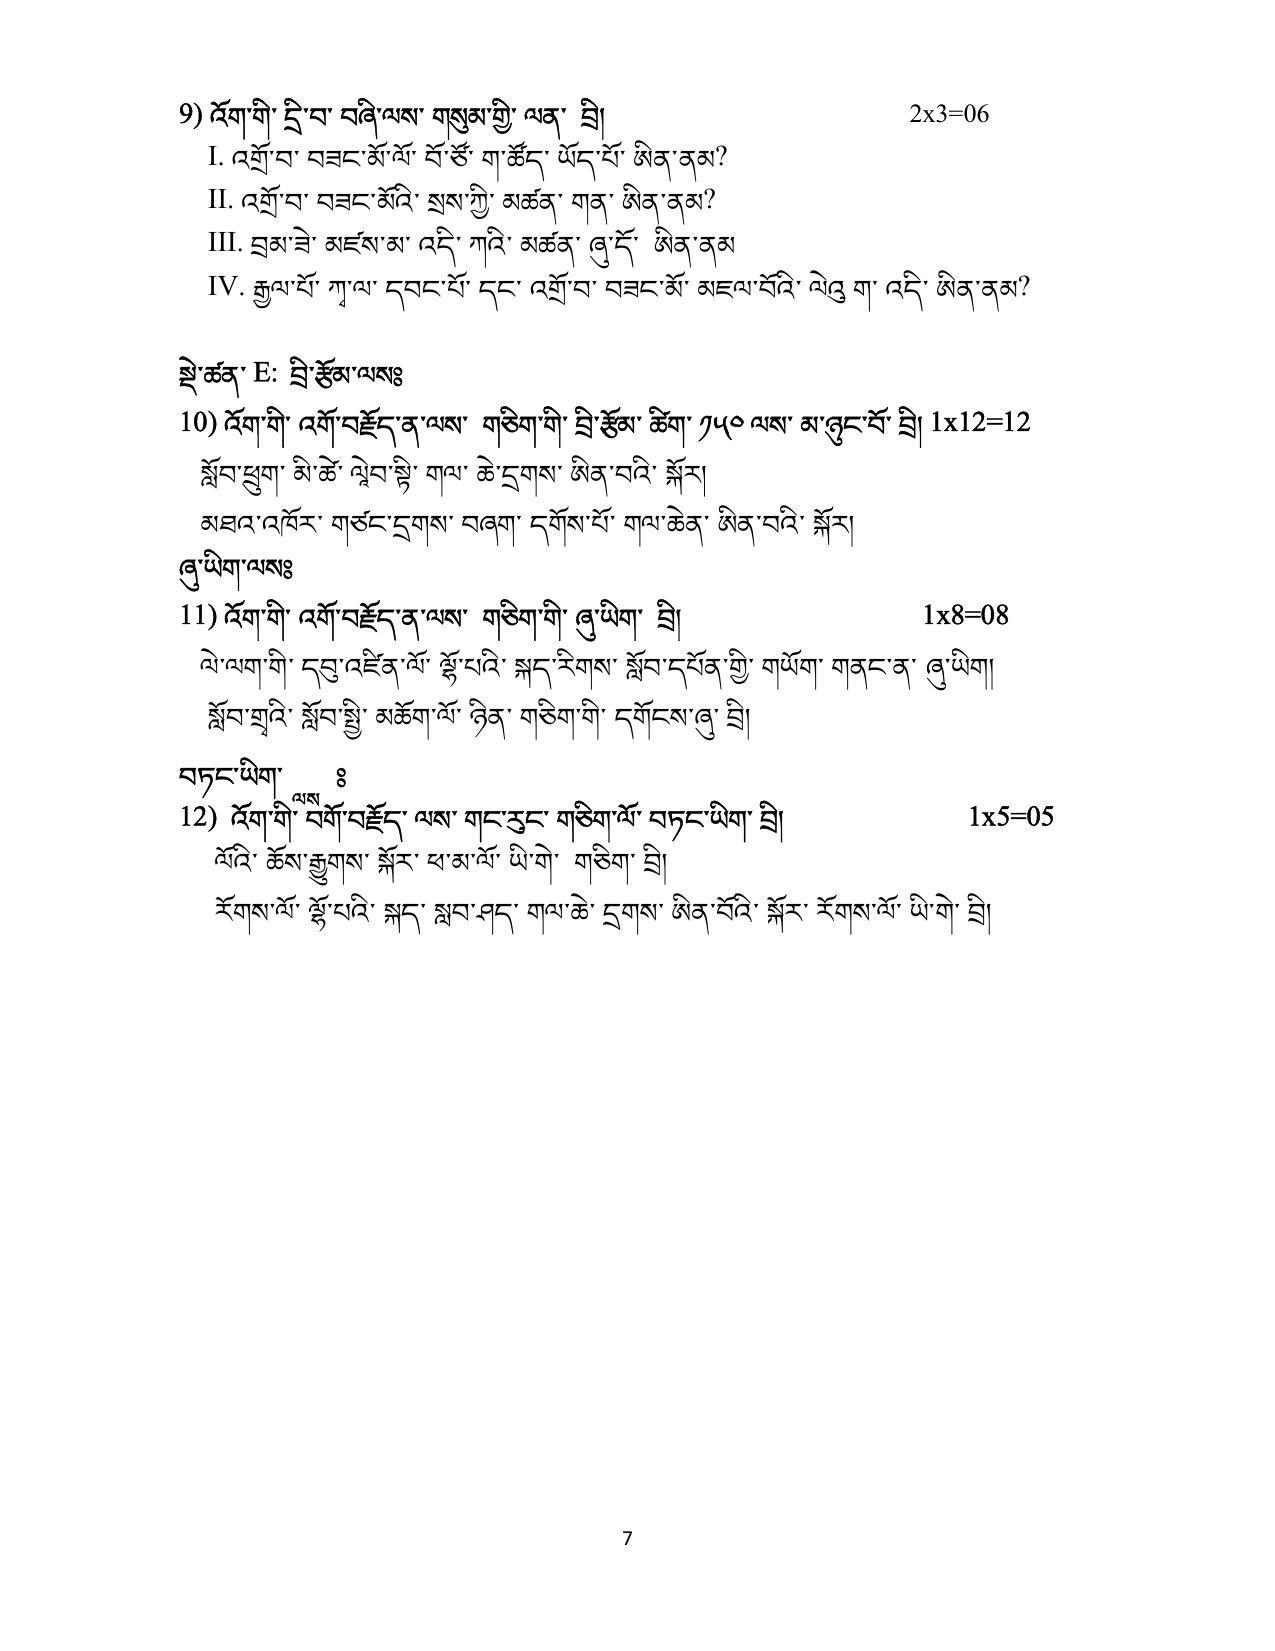 9) འོག་གི་ དྲི་བ་ བཞི་ལས་ གསུམ་གྱི་ ལན་ བྲི།	2x3=06
I. འགྲོ་བ་ བཟང་མོ་ལོ་ བོ་ཙོ་ ག་ཚོད་ ཡོད་པོ་ ཨིན་ནམ?
II. འགྲོ་བ་ བཟང་མོའི་ སྲས་ཀྱི་ མཚན་ གན་ ཨིན་ནམ?
III. བྲམ་ཟེ་ མཛས་མ་ འདི་ ཀའི་ མཚན་ ཞུ་དོ་ ཨིན་ནམ
IV. རྒྱལ་པོ་ ཀཱ་ལ་ དབང་པོ་ དང་ འགྲོ་བ་ བཟང་མོ་ མཇལ་བོའི་ ལེའུ ག་ འདི་ ཨིན་ནམ?
སྡེ་ཚན་ E: བྲི་རྩོམ་ལསཿ
10) འོག་གི་ འགོ་བརྗོད་ན་ལས་ གཅིག་གི་ བྲི་རྩོམ་ ཚིག་ ༡༥༠ ལས་ མ་ཉུང་བོ་ བྲི། 1x12=12
སློབ་ཕྲུག་ མི་ཚེ་ ལཱེབ་སྟི་ གལ་ ཆེ་དྲགས་ ཨིན་བའི་ སྐོར།
མཐའ་འཁོར་ གཙང་དྲགས་ བཞག་ དགོས་པོ་ གལ་ཆེན་ ཨིན་བའི་ སྐོར།
ཞུ་ཡིག་ལསཿ
11) འོག་གི་ འགོ་བརྗོད་ན་ལས་ གཅིག་གི་ ཞུ་ཡིག་ བྲི།	1x8=08
ལེ་ལག་གི་ དབུ་འཛིན་ལོ་ ལྷོ་པའི་ སྐད་རིགས་ སློབ་དཔོན་གྱི་ གཡོག་ གནང་ན་ ཞུ་ཡིག།
སློབ་གྲྭའི་ སློབ་སྤྱི་ མཆོག་ལོ་ ཉིན་ གཅིག་གི་ དགོངས་ཞུ་ བྲི།
བཏང་ཡིག་ ལས ཿ
12) འོག་གི་ བགོ་བརྗོད་ ལས་ གང་རུང་ གཅིག་ལོ་ བཏང་ཡིག་ བྲི།	1x5=05
ལོའི་ ཆོས་རྒྱུགས་ སྐོར་ ཕ་མ་ལོ་ ཡི་གེ་ གཅིག་ བྲི།
རོགས་ལོ་ ལྷོ་པའི་ སྐད་ སླབ་ཤད་ གལ་ཆེ་ དྲགས་ ཨིན་བོའི་ སྐོར་ རོགས་ལོ་ ཡི་གེ་ བྲི།
7